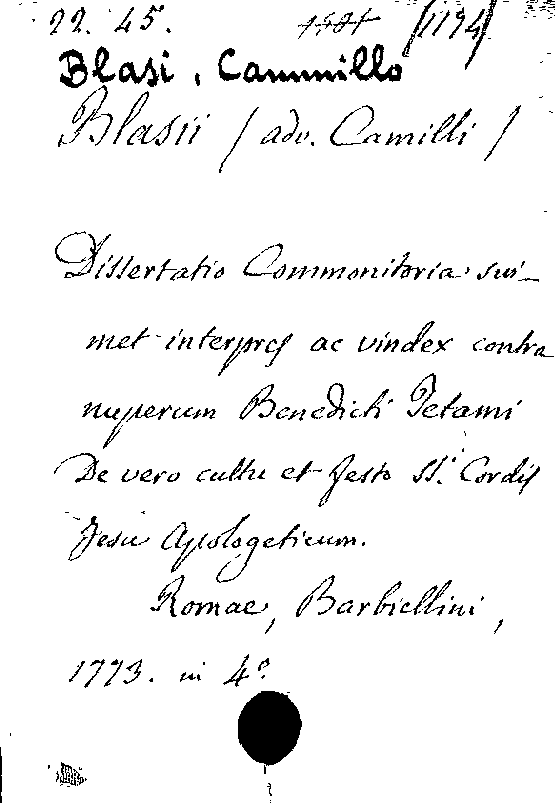 22. 45. /1194/
Blasi, Cammillo
Blasii / adv. Camilli /
Dissertatio Commonitoria sui-
met interpres ac vindex contra
nuperum Benedicti Tetami
De vero cultu et festo SS. Cordis
Jesu Apologeticum.
Romae, Barbiellini,
1773. in 4º